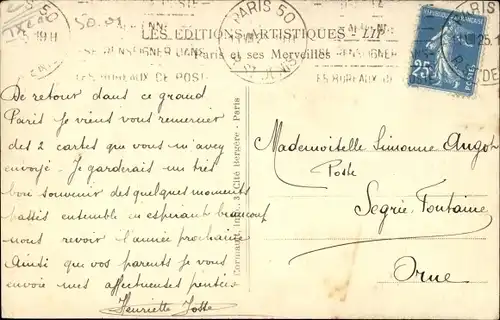 PARIS 50
PARIS
LES EDITIONS ARTISTIQUES - LIP
SE RENSEIGNER DANS
Paris et ses Merveilles
LES BUREAUX DE POSTE
25
POSTES
De retour dans ce grand
Paris Je viens vous remercier
des 2 cartes que vous m'avez
envoyé. Je garderais un très
bon souvenir des quelques moments
passés ensemble en esperant beaucoup
vous revoir l'année prochaine
Ainsi que vos parents Je vous
envoie mes affectueuses pensées
Henriette Josse
3, Cité Bergère - Paris
Mademoiselle Simonne Angot
Poste
Segrie-Fontaine
Orne